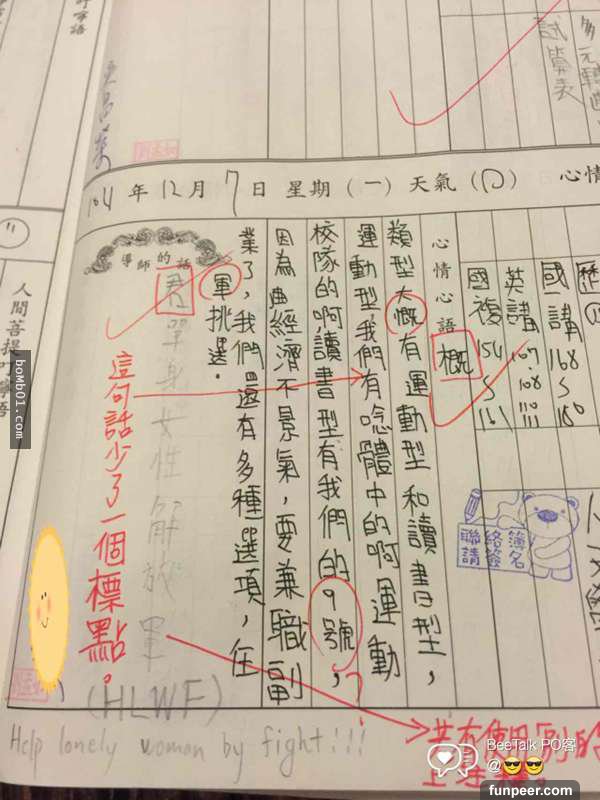 試算表
104 年 12 月 7 日 星期 (一) 天氣 ( ) 心情
歷
國講 168 ~ 180
英講 107.108 110 111
國複 154 ~ 161
聯絡簿
請簽名
心情心語
概
類型大概有運動型和讀書型，
運動型，我們有唸體中的啊，運動
校隊的啊，讀書型有我們的9號，
因為曲經濟不景氣，要兼職副
業了，我們還有多種選項，任
軍挑選.
導師的話
君
單身女性解放軍
(HLWF)
Help lonely woman by fight!!!
這句話少了一個標點。
人間菩提叮嚀語
BeeTalk PO客
@😎😎
bomb01.com
funpeer.com